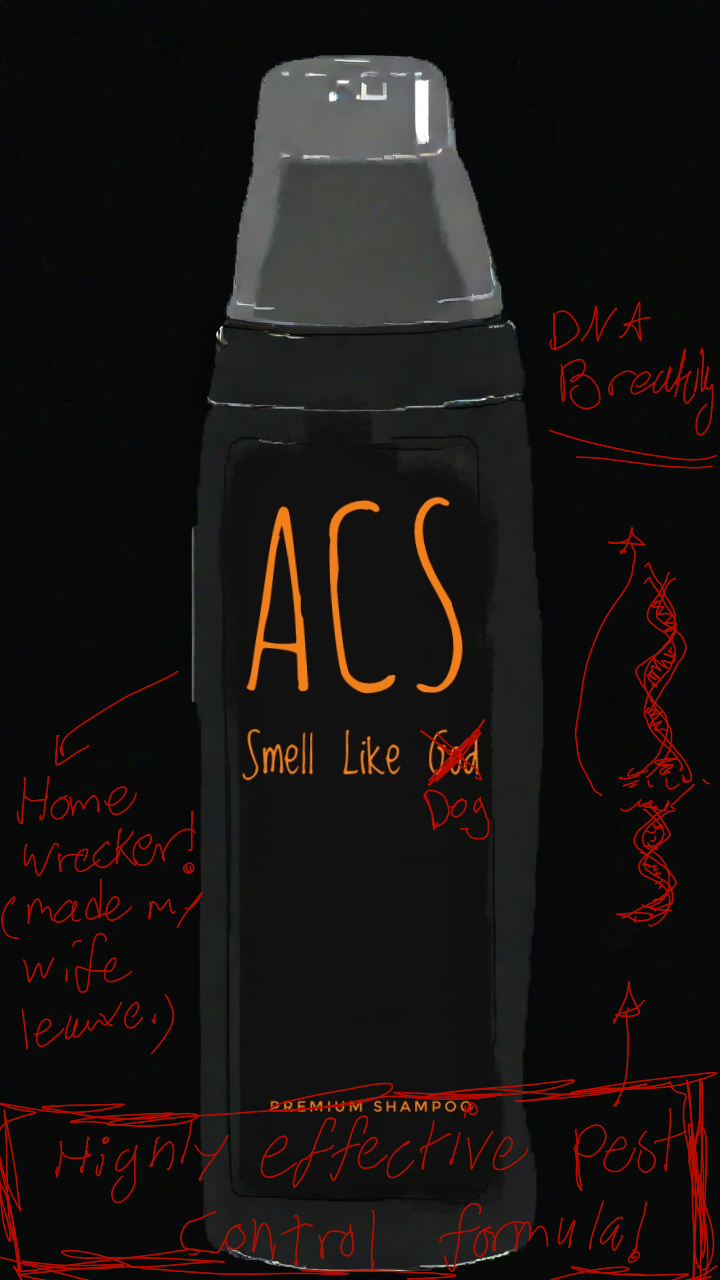 DNA
Breakily
ACS
Smell Like God
Dog
Home
wrecker!
(made my
wife
leave.)
PREMIUM SHAMPOO
Highly effective Pest
Control formula!